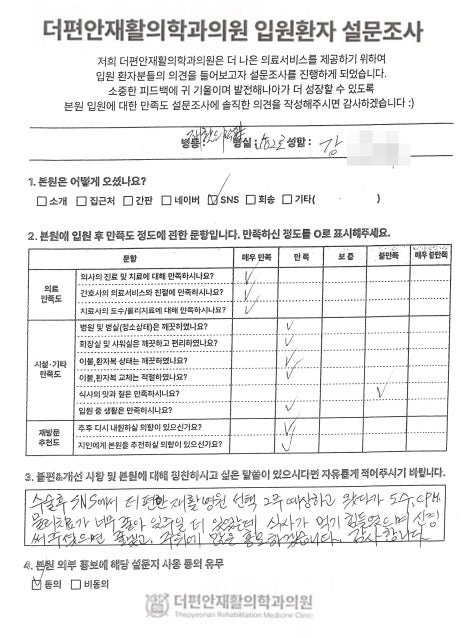 더편안재활의학과의원 입원환자 설문조사
저희 더편안재활의학과의원은 더 나은 의료서비스를 제공하기 위하여
입원 환자분들의 의견을 들어보고자 설문조사를 진행하게 되었습니다.
소중한 피드백에 귀 기울이며 발전해나아가 더 성장할 수 있도록
본원 입원에 대한 만족도 설문조사에 솔직한 의견을 작성해주시면 감사하겠습니다 :)
병동 : 병실 : 성함 : 강
1. 본원은 어떻게 오셨나요?
□ 소개 □ 집근처 □ 간판 □ 네이버 ☑ SNS □ 회송 □ 기타( )
2. 본원에 입원 후 만족도 정도에 관한 문항입니다. 만족하신 정도를 O로 표시해주세요.
문항 매우 만족 만 족 보 통 불만족 매우 불만족
의료 만족도
의사의 진료 및 치료에 대해 만족하시나요? ✓
간호사의 의료서비스와 친절에 만족하시나요? ✓
치료사의 도수/물리치료에 대해 만족하시나요? ✓
시설·기타 만족도
병원 및 병실(청소상태)은 깨끗하였나요? ✓
화장실 및 샤워실은 깨끗하고 편리하였나요? ✓
이불,환자복 상태는 깨끗하였나요? ✓
이불,환자복 교체는 적절하였나요? ✓
식사의 맛과 질은 만족하시나요? ✓
입원 중 생활은 만족하시나요? ✓
재방문 추천도
추후 다시 내원하실 의향이 있으신가요? ✓
지인에게 본원을 추천하실 의향이 있으신가요? ✓
3. 불편&개선 사항 및 본원에 대해 칭찬하시고 싶은 말씀이 있으시다면 자유롭게 적어주시기 바랍니다.
수술후 SNS에서 더편한 재활병원 선택 2주 예상하고 왔다가 도수, CPM
물리치료가 너무 좋아 일주일 더 있었는데 식사가 먹기 힘들었으며 신경
써주셨으면 좋겠고, 주위에 많은 홍보하겠습니다. 감사합니다
4. 본원 외부 홍보에 해당 설문지 사용 동의 유무
☑ 동의 □ 비동의
더편안재활의학과의원
Thepyeonan Rehabilitation Medicine Clinic